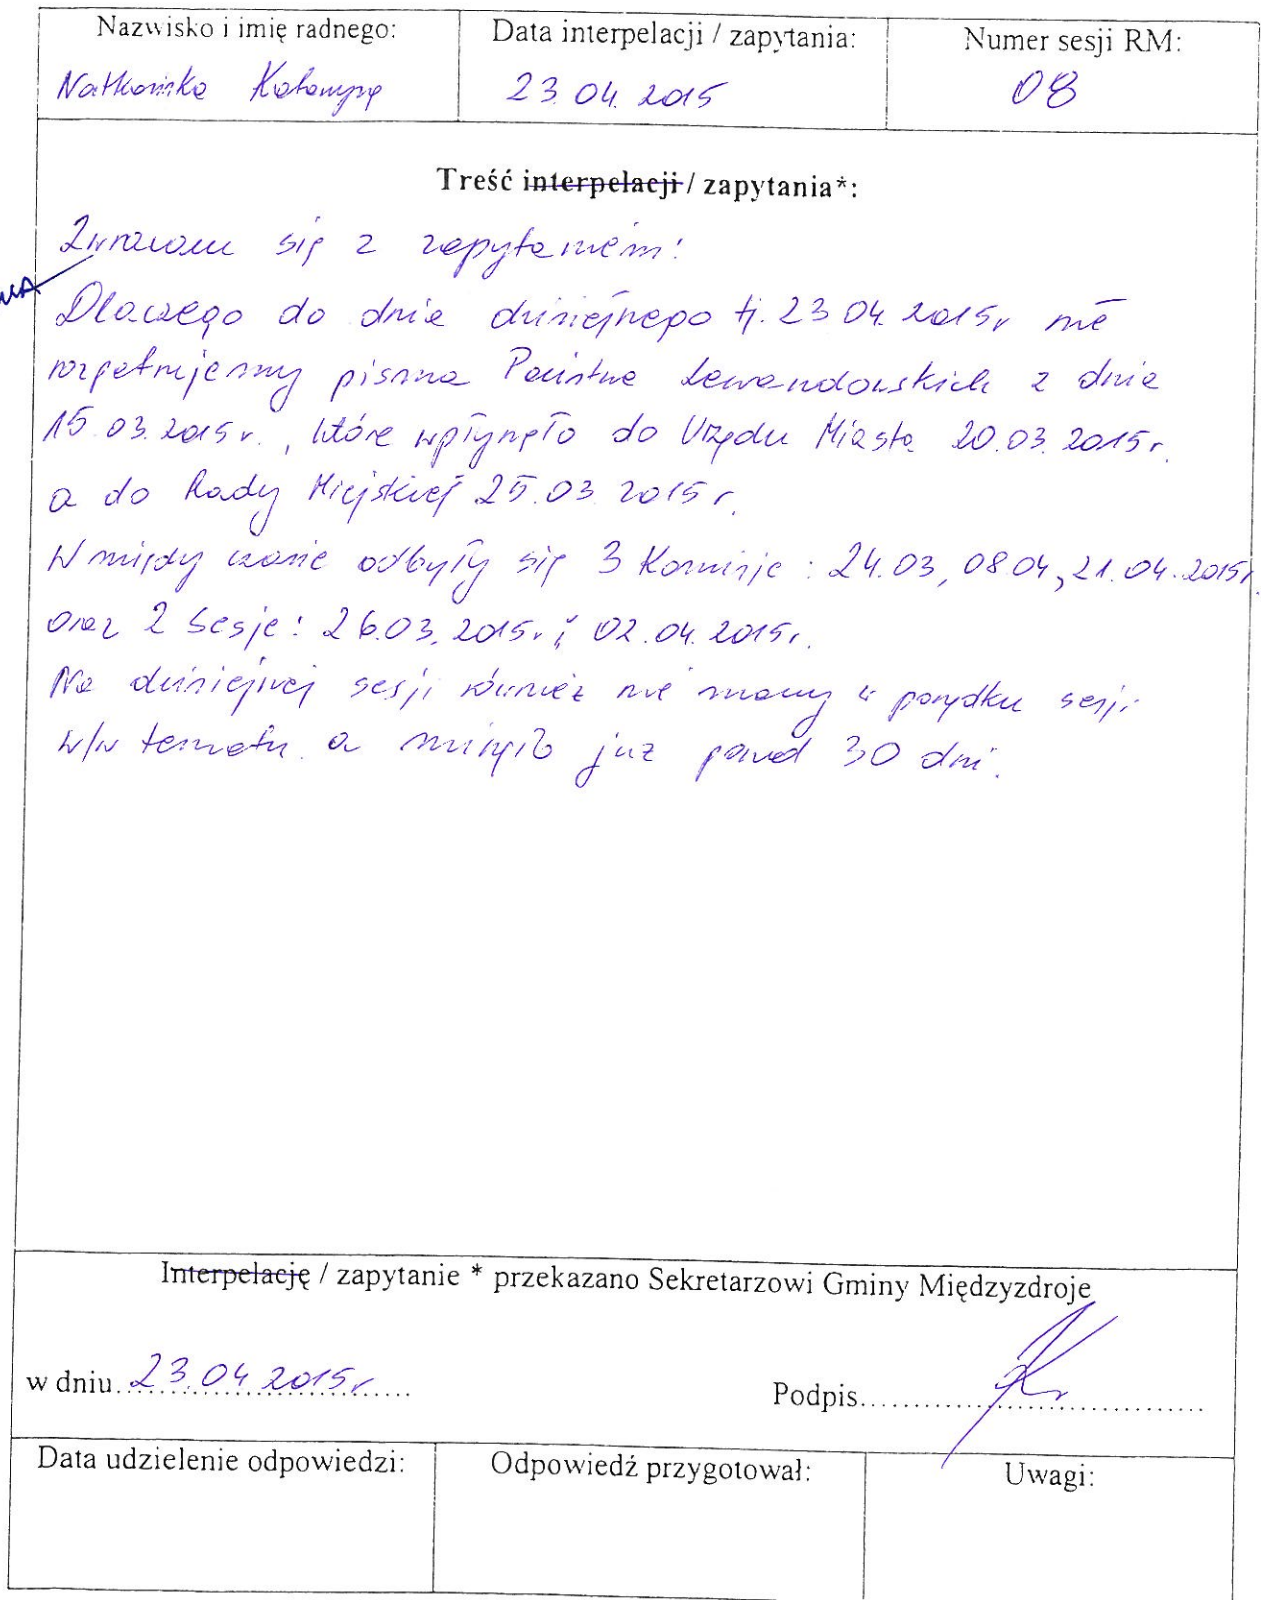 Nazwisko i imię radnego:
Data interpelacji / zapytania:
Numer sesji RM:
Natkańska Katarzyna
23.04.2015
08
Treść interpelacji / zapytania*:
Zwracam się z zapytaniem:
Dlaczego do dnia dzisiejszego tj. 23 04. 2015r nie
rozpatrujemy pisma Państwa Lewandowskich z dnia
15.03.2015 r., które wpłynęło do Urzędu Miasta 20.03.2015r.
a do Rady Miejskiej 25.03 2015 r.
W między czasie odbyły się 3 Komisje: 24.03, 08 04, 21.04.2015r.
oraz 2 Sesje: 26.03.2015r. i 02.04.2015r.
Na dzisiejszej sesji również nie mamy w porządku sesji
w/w tematu a minęło już ponad 30 dni.
Interpelację / zapytanie * przekazano Sekretarzowi Gminy Międzyzdroje
w dniu 23.04 2015r
Podpis
Data udzielenie odpowiedzi:
Odpowiedź przygotował:
Uwagi: